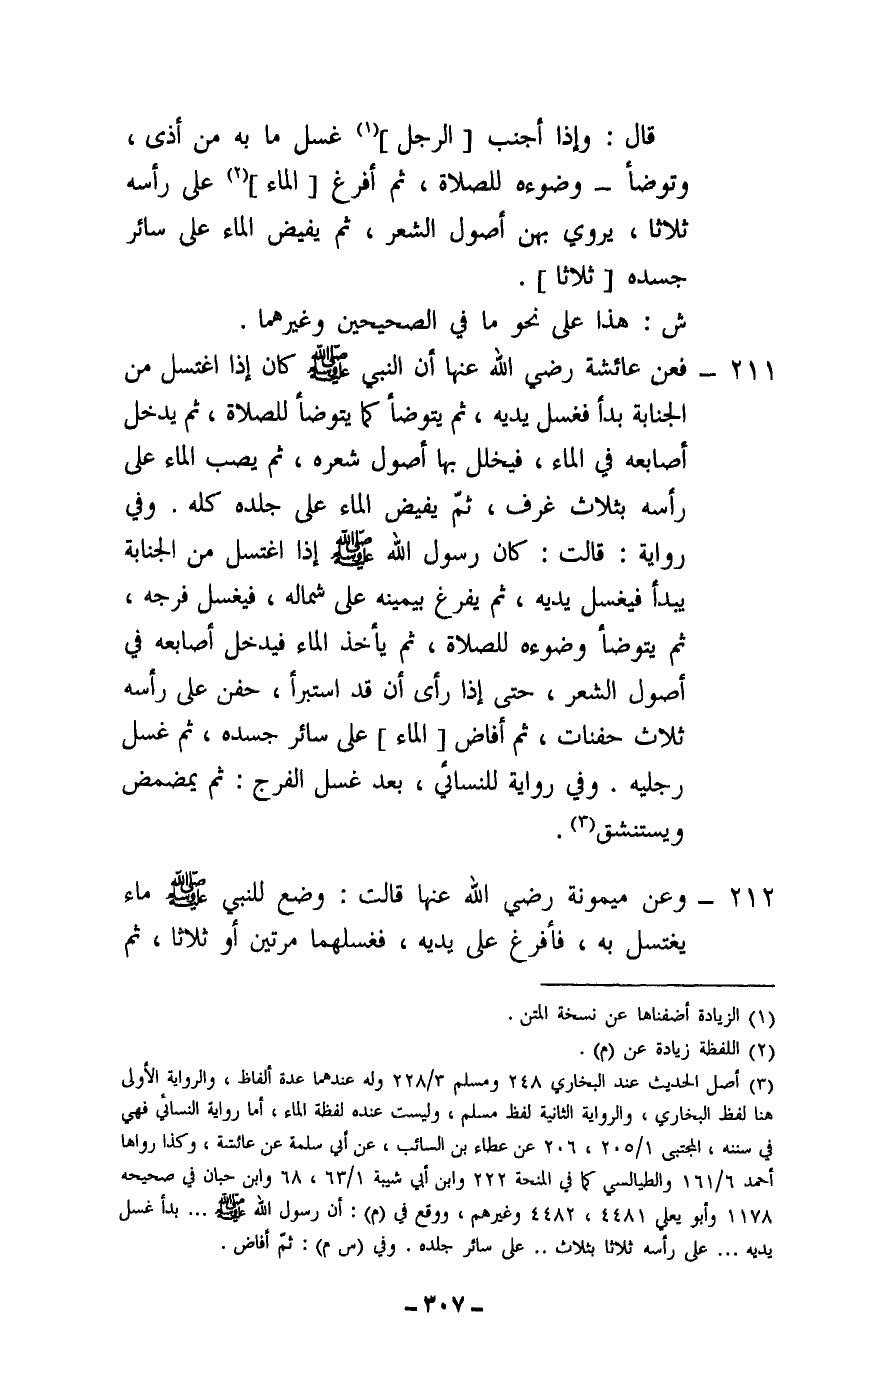 قال : وإذا أجنب [ الرجل ](١) غسل ما به من أذى ،
وتوضأ – وضوءه للصلاة ، ثم أفرغ [ الماء ](٢) على رأسه
ثلاثا ، يروي بهن أصول الشعر ، ثم يفيض الماء على سائر
جسده [ ثلاثا ] .
ش : هذا على نحو ما في الصحيحين وغيرهما .
٢١١ – فعن عائشة رضي الله عنها أن النبي ﷺ كان إذا اغتسل من
الجنابة بدأ فغسل يديه ، ثم يتوضأ كما يتوضأ للصلاة ، ثم يدخل
أصابعه في الماء ، فيخلل بها أصول شعره ، ثم يصب الماء على
رأسه بثلاث غرف ، ثمّ يفيض الماء على جلده كله . وفي
رواية : قالت : كان رسول الله ﷺ إذا اغتسل من الجنابة
يبدأ فيغسل يديه ، ثم يفرغ بيمينه على شماله ، فيغسل فرجه ،
ثم يتوضأ وضوءه للصلاة ، ثم يأخذ الماء فيدخل أصابعه في
أصول الشعر ، حتى إذا رأى أن قد استبرأ ، حفن على رأسه
ثلاث حفنات ، ثم أفاض [ الماء ] على سائر جسده ، ثم غسل
رجليه . وفي رواية للنسائي ، بعد غسل الفرج : ثم يمضمض
ويستنشق(٣) .
٢١٢ – وعن ميمونة رضي الله عنها قالت : وضع للنبي ﷺ ماء
يغتسل به ، فأفرغ على يديه ، فغسلهما مرتين أو ثلاثا ، ثم
(١) الزيادة أضفناها عن نسخة المتن .
(٢) اللفظة زيادة عن (م) .
(٣) أصل الحديث عند البخاري ٢٤٨ ومسلم ٢٢٨/٣ وله عندهما عدة ألفاظ ، والرواية الأولى
هنا لفظ البخاري ، والرواية الثانية لفظ مسلم ، وليست عنده لفظة الماء ، أما رواية النسائي فهي
في سننه ، المجتبى ٢٠٥/١ ، ٢٠٦ عن عطاء بن السائب ، عن أبي سلمة عن عائشة ، وكذا رواها
أحمد ١٦١/٦ والطيالسي كما في المنحة ٢٢٢ وابن أبي شيبة ٦٣/١ ، ٦٨ وابن حبان في صحيحه
١١٧٨ وأبو يعلي ٤٤٨١ ، ٤٤٨٢ وغيرهم ، ووقع في (م) : أن رسول الله ﷺ ... بدأ غسل
يديه ... على رأسه ثلاثا بثلاث .. على سائر جلده . وفي (س م) : ثمّ أفاض .
– ٣٠٧ –